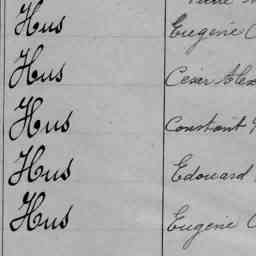 Hus Eugène
Hus César Alex
Hus Constant
Hus Edouard
Hus Eugène